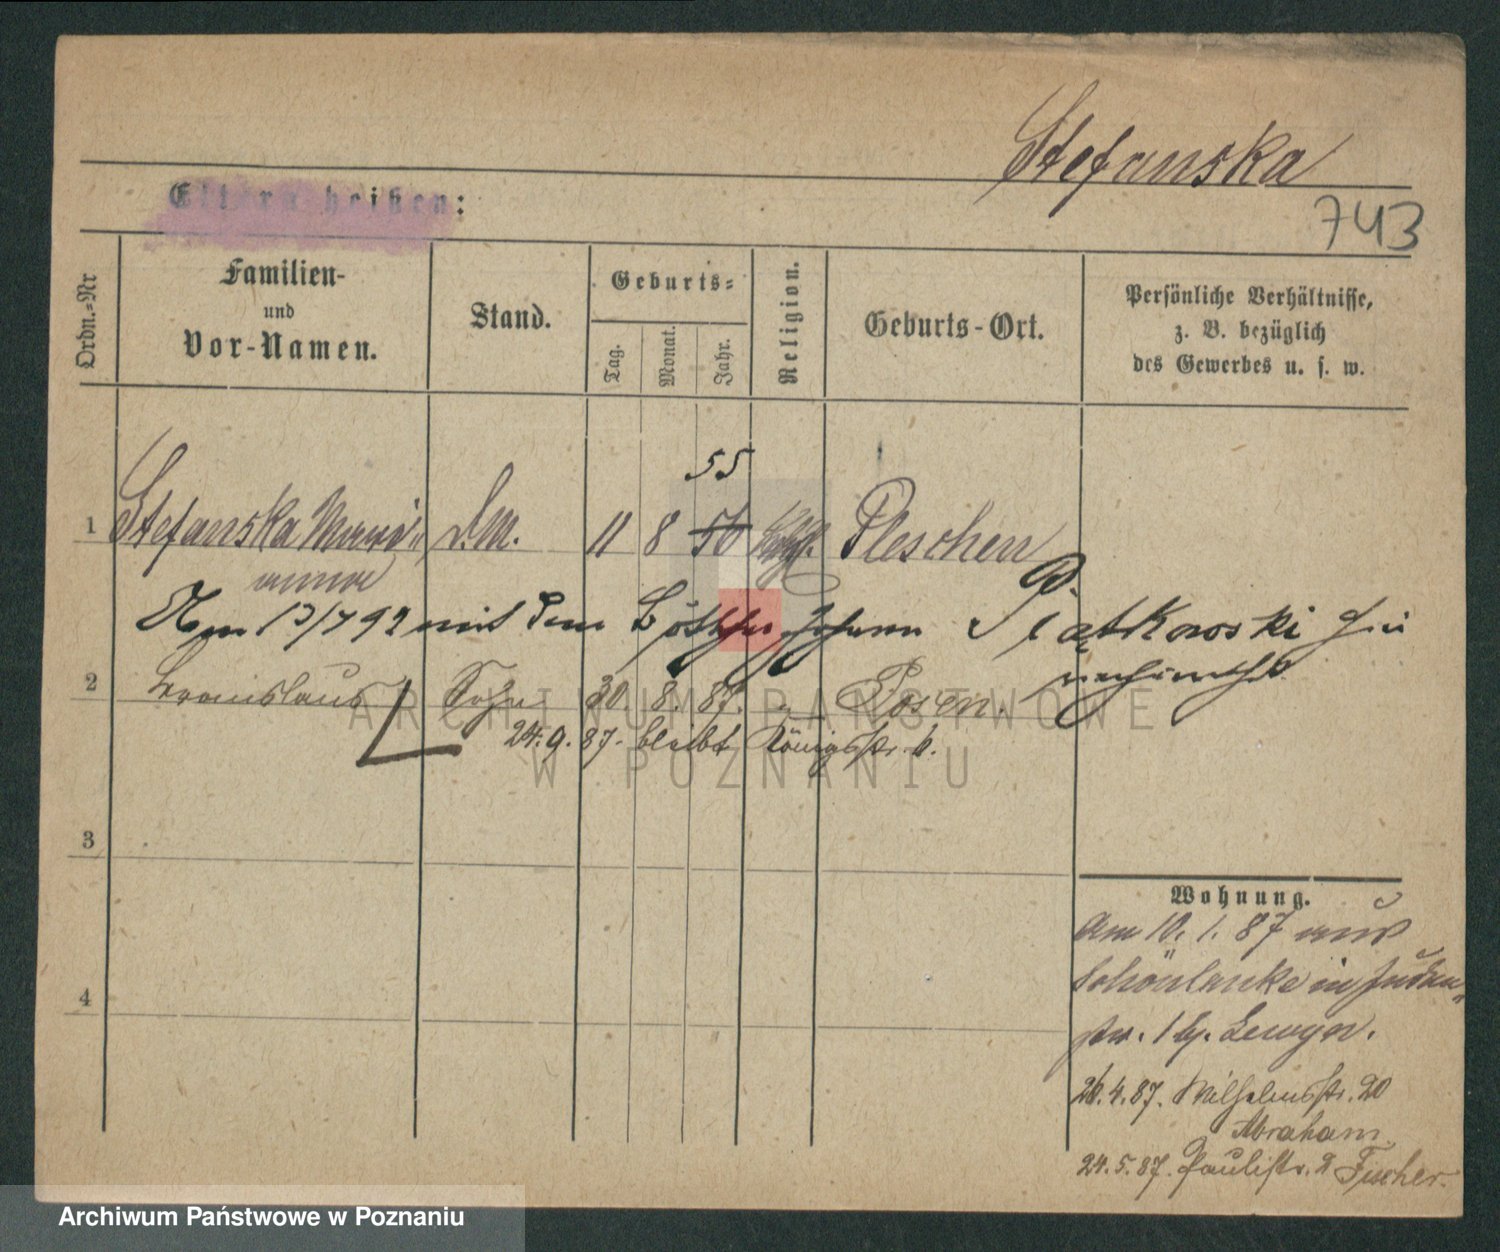 Stefanska
743
Eltern heißen:
Ordn.-Nr
Familien-
und
Vor-Namen.
Stand.
Geburts-
Tag.
Monat.
Jahr.
Religion.
Geburts-Ort.
Persönliche Verhältnisse,
z. B. bezüglich
des Gewerbes u. s. w.
55
1 Stefanska Mari- D.M. 11 8 50 kath. Pleschen
anna
Am 13/7 92 mit dem Johann Piątkowski hier
verheirathet
2 Bronislaus Sohn 30. 8. 87. " Posen.
24. 9. 87. bleibt Königsstr. 6.
3
4
Wohnung.
am 10. 1. 87 aus
Schönlanke in Juden-
str. 1 b. Lewyn.
26. 4. 87. Wilhelmsstr. 20
Abraham
24. 5. 87. Paulistr. 2 Fischer.
ARCHIWUM PAŃSTWOWE
W POZNANIU
Archiwum Państwowe w Poznaniu